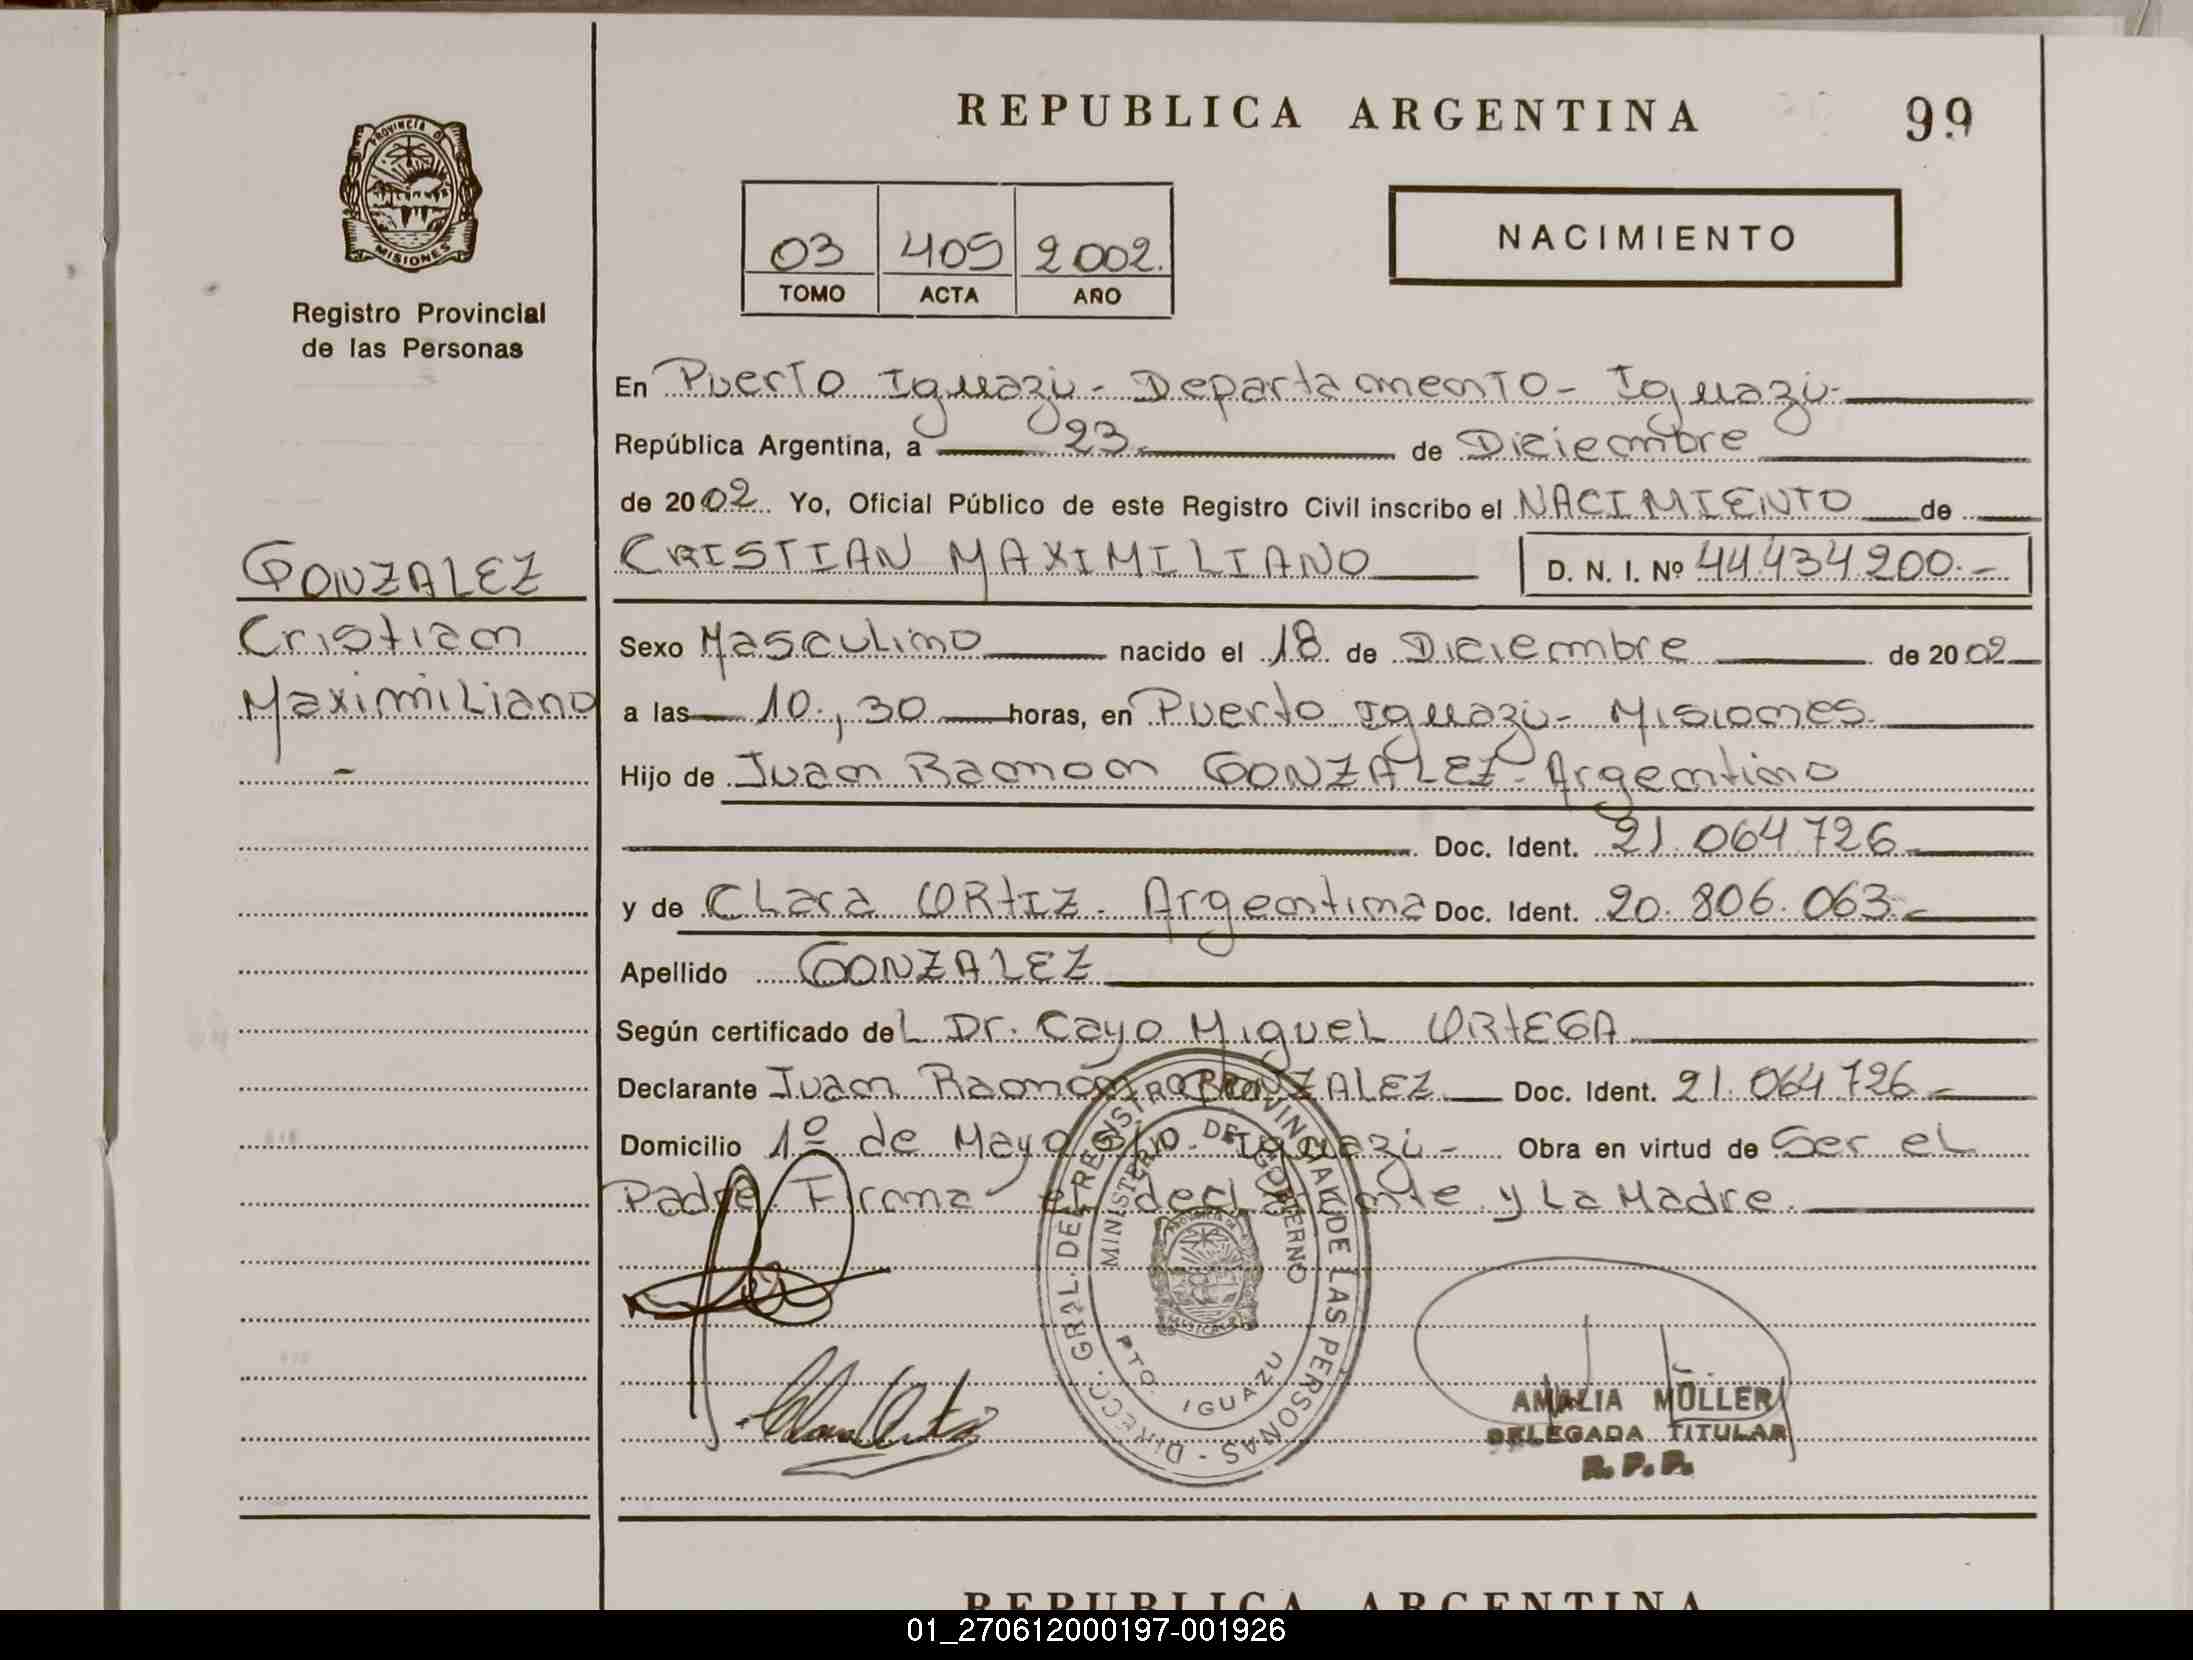 REPUBLICA ARGENTINA
99
PROVINCIA DE
MISIONES
Registro Provincial
de las Personas
03 405 2002.
TOMO ACTA AÑO
NACIMIENTO
En Puerto Iguazú - Departamento - Iguazú-
República Argentina, a 23 de Diciembre
de 2002. Yo, Oficial Público de este Registro Civil inscribo el NACIMIENTO de
CRISTIAN MAXIMILIANO D. N. I. Nº 44.434.200.-
GONZALEZ
Cristian
Maximiliano
-
Sexo Masculino nacido el 18 de Diciembre de 2002
a las 10,30 horas, en Puerto Iguazú- Misiones
Hijo de Juan Ramon GONZALEZ - Argentino
Doc. Ident. 21.064.726
y de Clara ORTIZ. Argentina Doc. Ident. 20.806.063.-
Apellido GONZALEZ
Según certificado del Dr. Cayo Miguel ORTEGA
Declarante Juan Ramon GONZALEZ Doc. Ident. 21.064.726-
Domicilio 1º de Mayo S/N. Iguazú- Obra en virtud de Ser el
Padre. Firma el declarante y La Madre.
DIRECC. GRAL. DEL REGISTRO PROVINCIAL DE LAS PERSONAS -
MINISTERIO DE GOBIERNO
PTO. IGUAZU
AMALIA MÜLLER
DELEGADA TITULAR
R. P. P.
REPUBLICA ARGENTINA
01_270612000197-001926